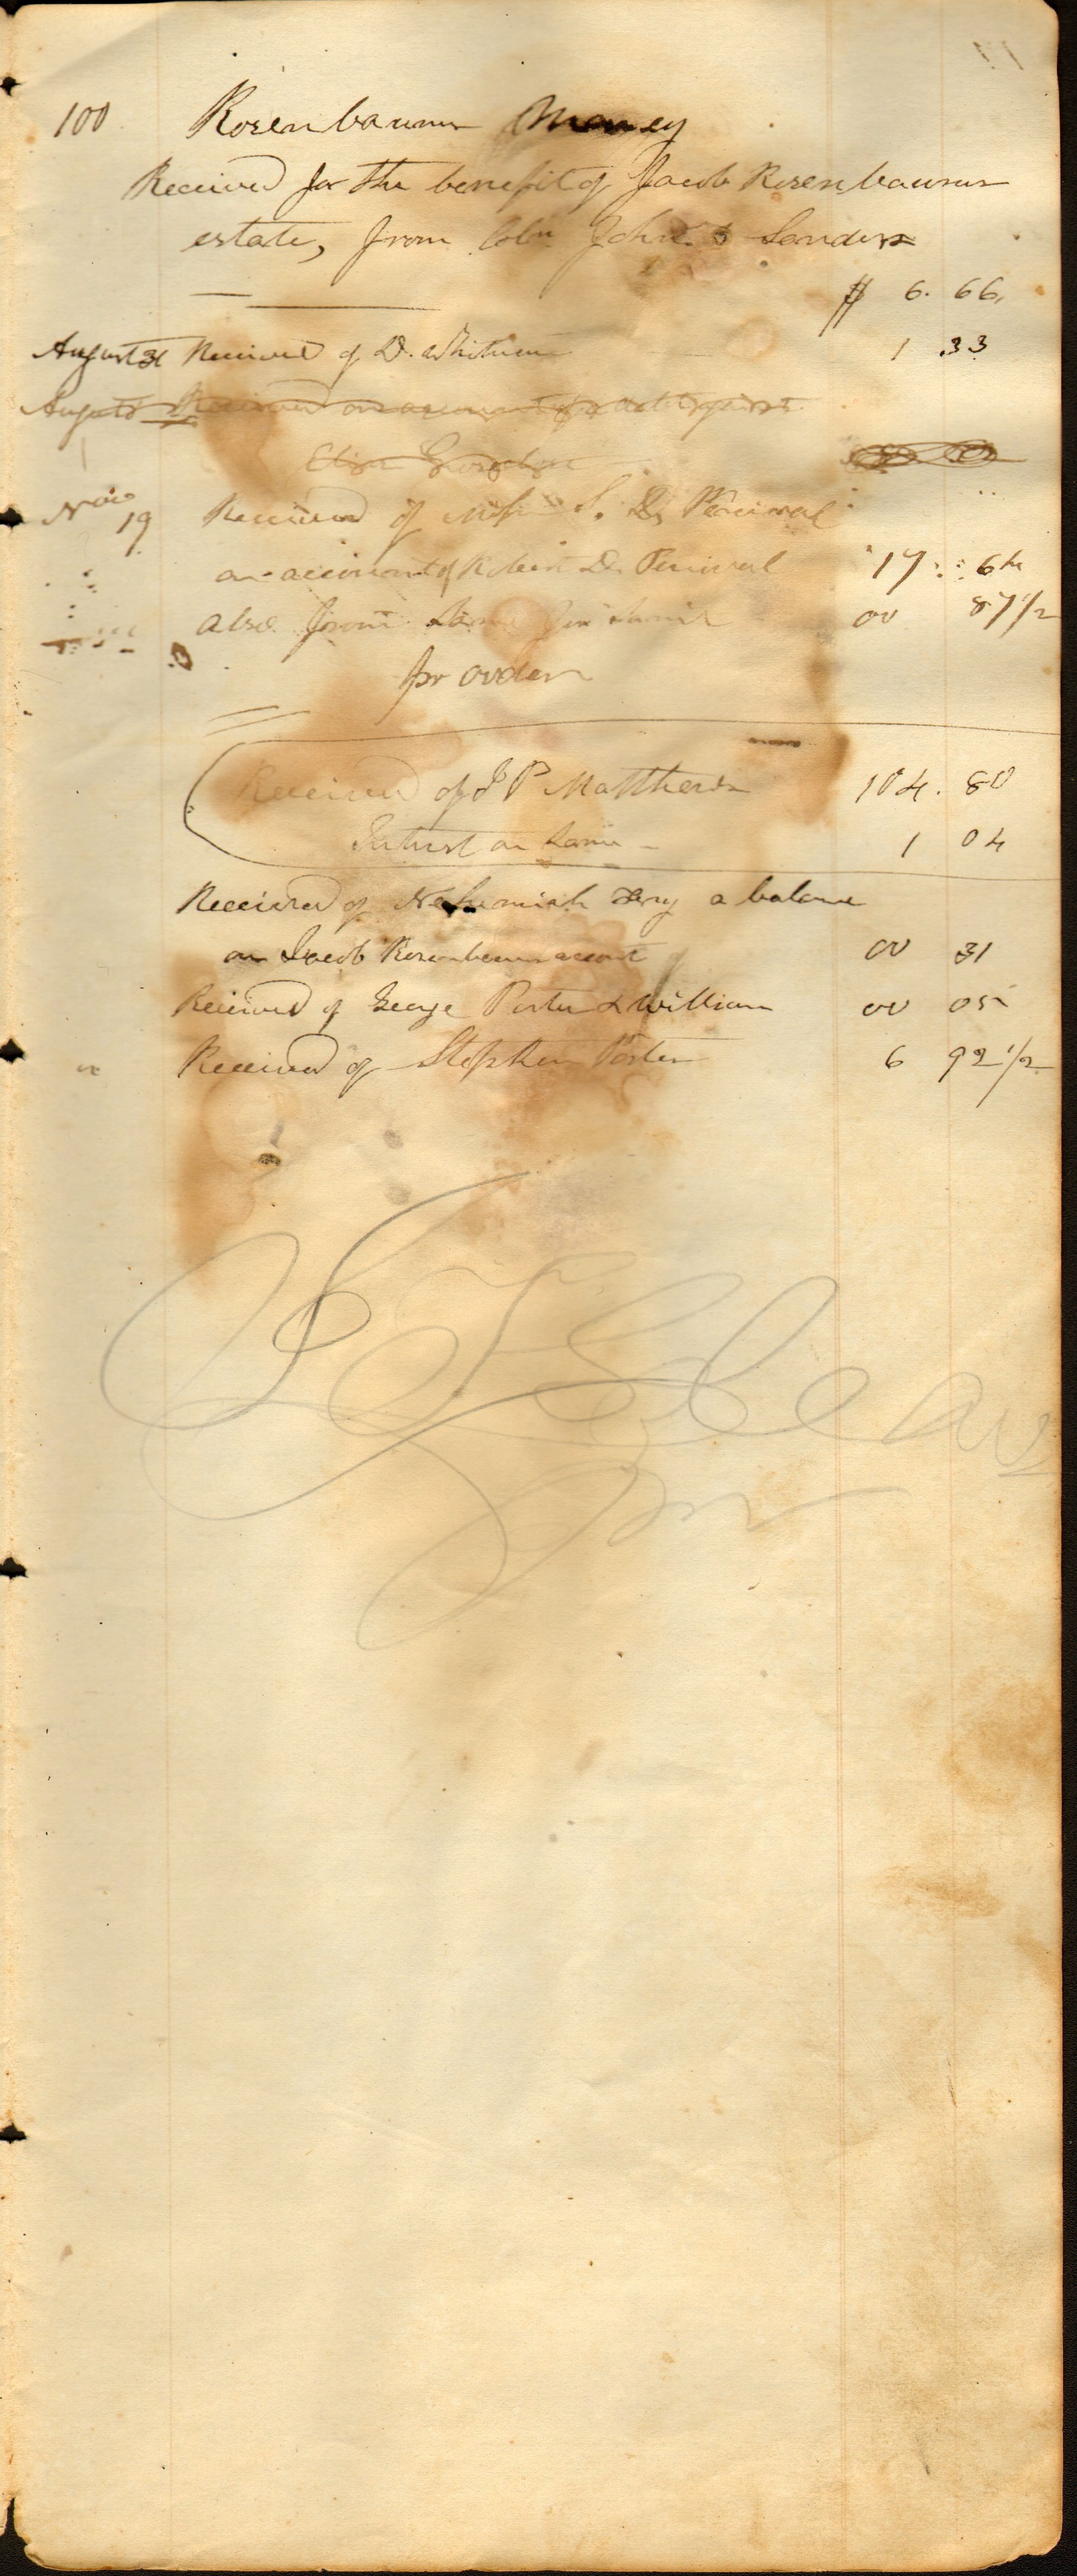 100 Rosenbaums Money
Received for the benefit of Jacob Rosenbaums
estate, from Coln John Sanders
$ 6. 66
August 31 Received of D. Whitman 1 33
August Received on account of a debt against
Nov 19 Received of S. D. Percival
on account of Robert D. Percival 17 6
also from Same 00 87 1/2
for order
Received of J P Matthews 104. 80
Interest on Same 1 04
Received of Nehemiah a balance
on Jacob Rosenbaums account 00 31
Received of George Porter & William 00 05
Received of Stephen Porter 6 92 1/2